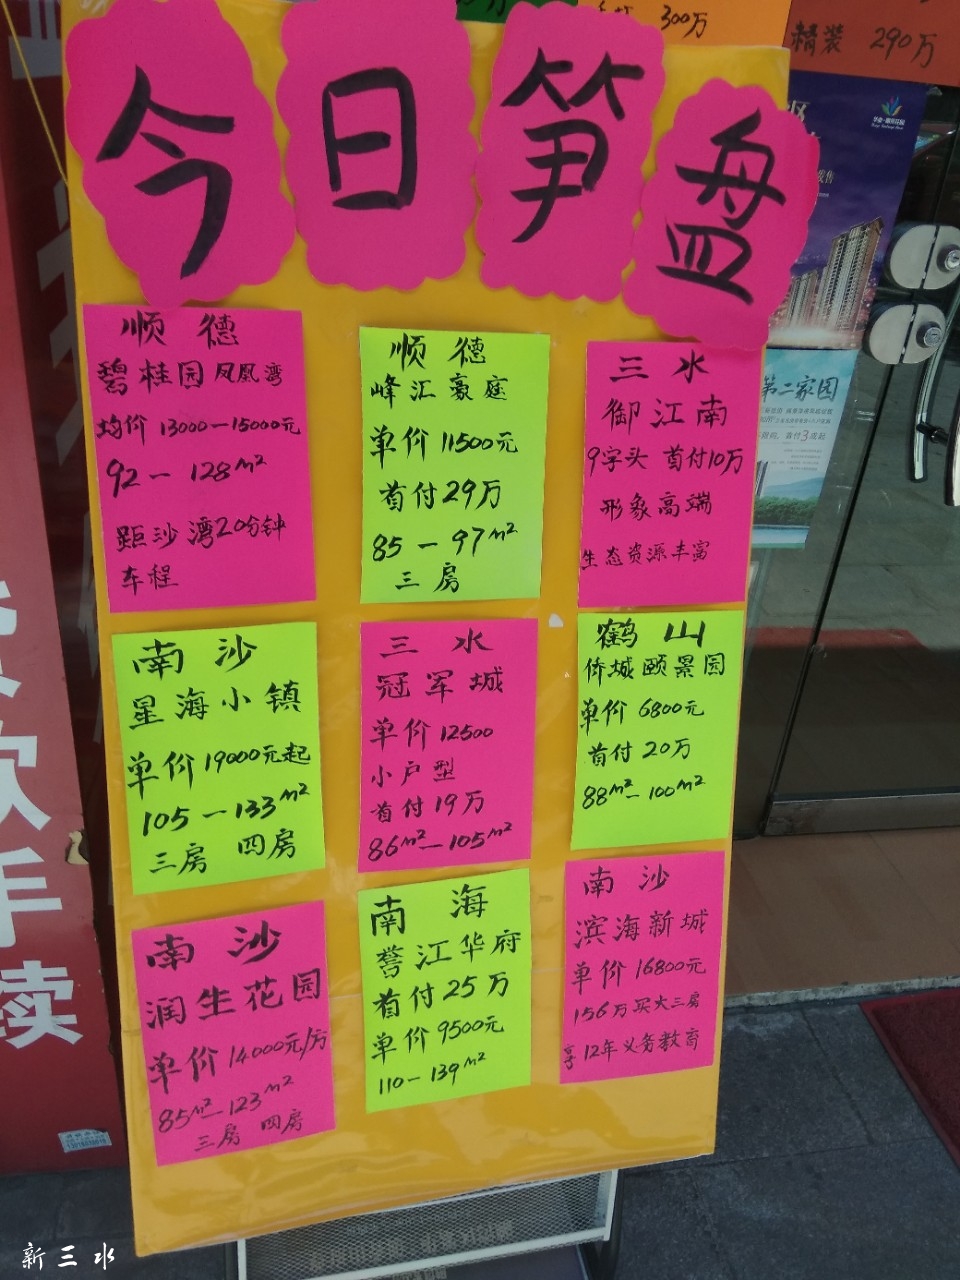 300万
精装 290万
今日笋盘
顺德
碧桂园凤凰湾
均价 13000—15000元
92—128m²
距沙湾20分钟
车程
顺德
峰汇豪庭
单价 11500元
首付29万
85—97m²
三房
三水
御江南
9字头 首付10万
形象高端
生态资源丰富
南沙
星海小镇
单价19000元起
105—133m²
三房 四房
三水
冠军城
单价12500
小户型
首付19万
86m²—105m²
鹤山
侨城颐景园
单价6800元
首付20万
88m²—100m²
南沙
润生花园
单价14000元/方
85m²—123m²
三房 四房
南海
誉江华府
首付25万
单价9500元
110—139m²
南沙
滨海新城
单价16800元
156万买大三房
享12年义务教育
第二家园
续
新三水